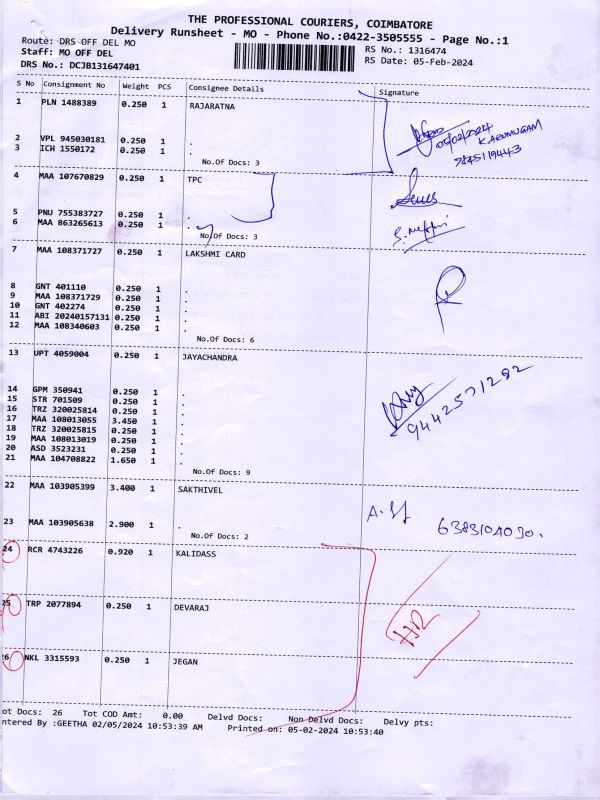 THE PROFESSIONAL COURIERS, COIMBATORE
Delivery Runsheet - MO - Phone No.:0422-3505555 - Page No.:1
Route: DRS OFF DEL MO
RS No.: 1316474
Staff: MO OFF DEL
RS Date: 05-Feb-2024
DRS No.: DCJB131647401
S No Consignment No Weight PCS Consignee Details Signature
1 PLN 1488389 0.250 1 RAJARATNA
05/02/2024
K.ARUMUGAM
7845119443
2 VPL 945030181 0.250 1 .
3 ICH 1550172 0.250 1 .
No.Of Docs: 3
4 MAA 107670829 0.250 1 TPC
5 PNU 755383727 0.250 1 .
6 MAA 863265613 0.250 1 .
No.Of Docs: 3
7 MAA 108371727 0.250 1 LAKSHMI CARD
8 GNT 401110 0.250 1 .
9 MAA 108371729 0.250 1 .
10 GNT 402274 0.250 1 .
11 ABI 20240157131 0.250 1 .
12 MAA 108340603 0.250 1 .
No.Of Docs: 6
13 UPT 4059004 0.250 1 JAYACHANDRA
9442571292
14 GPM 350941 0.250 1 .
15 STR 701509 0.250 1 .
16 TRZ 320025814 0.250 1 .
17 MAA 108013055 3.450 1 .
18 TRZ 320025815 0.250 1 .
19 MAA 108013019 0.250 1 .
20 ASD 3523231 0.250 1 .
21 MAA 104708822 1.650 1 .
No.Of Docs: 9
22 MAA 103905399 3.400 1 SAKTHIVEL
23 MAA 103905638 2.900 1 .
6383104030.
No.Of Docs: 2
24 RCR 4743226 0.920 1 KALIDASS
25 TRP 2077894 0.250 1 DEVARAJ
26 NKL 3315593 0.250 1 JEGAN
ot Docs: 26 Tot COD Amt: 0.00 Delvd Docs: Non Delvd Docs: Delvy pts:
ntered By :GEETHA 02/05/2024 10:53:39 AM Printed on: 05-02-2024 10:53:40